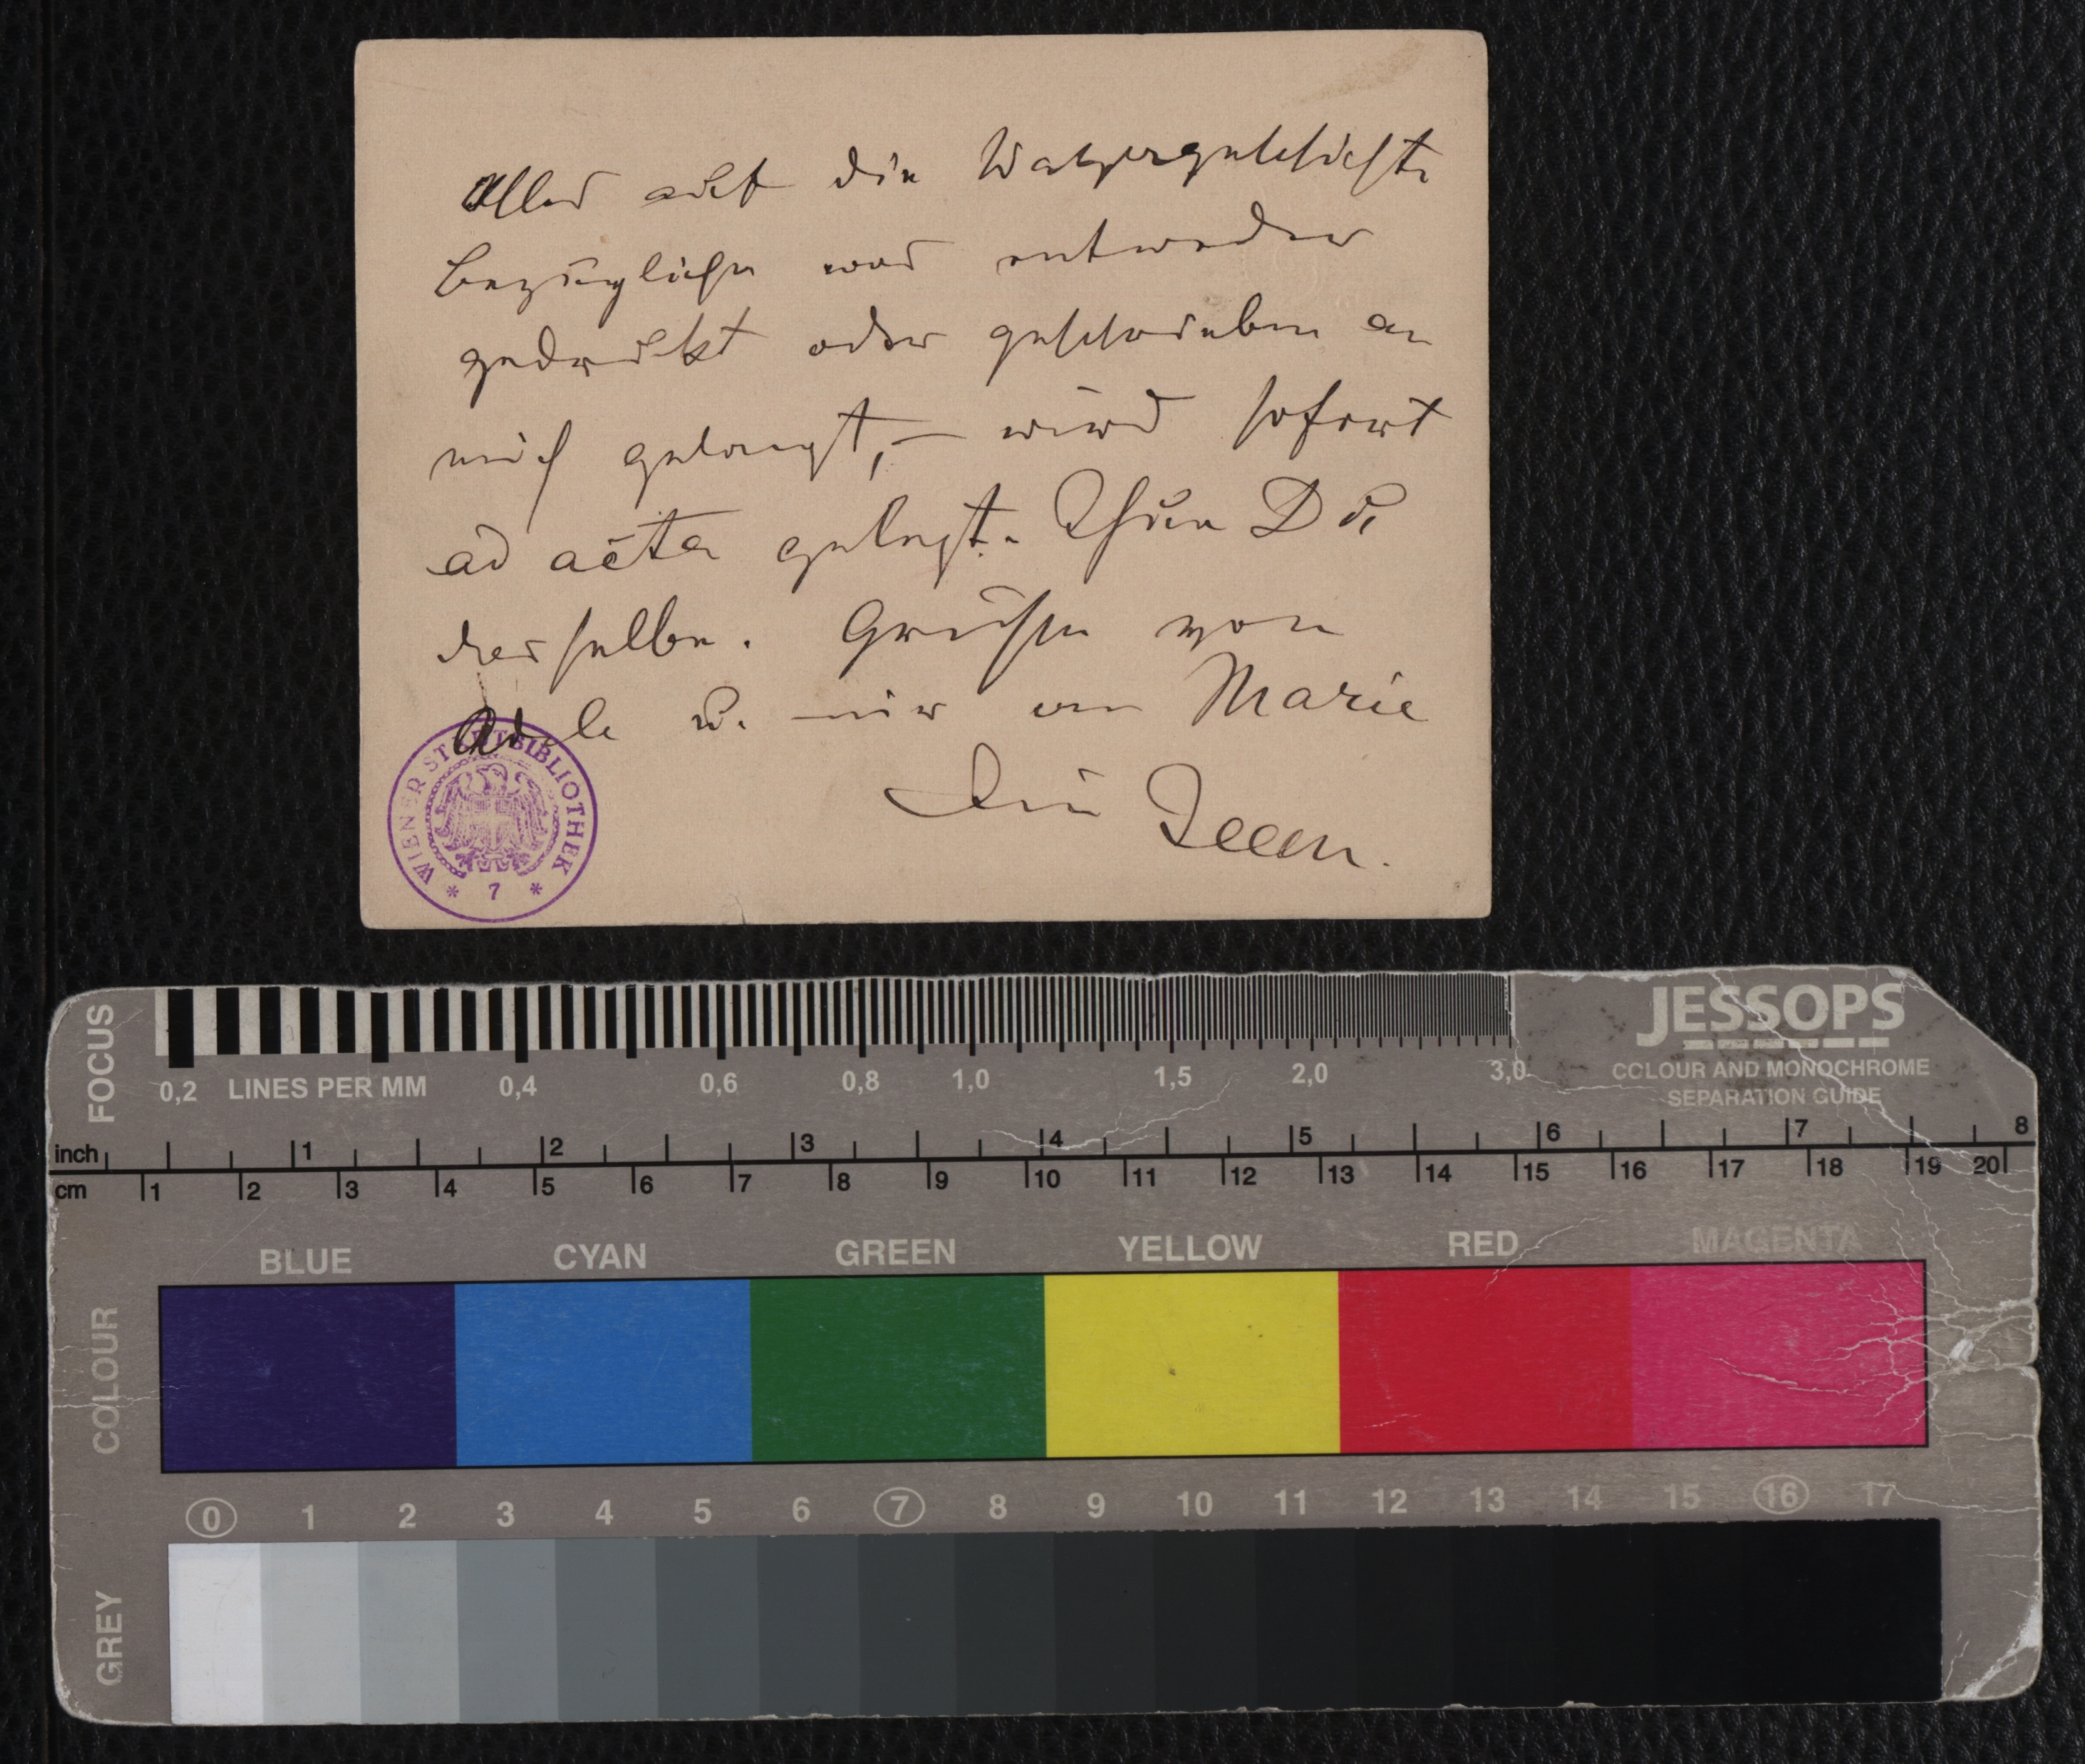 Alles auf die Walzergeschichte
bezügliche was entweder
gedruckt oder geschrieben an
mich gelangt, – wird sofort
ad acta gelegt. Thue Du
dasselbe. Grüsse von
Adele u. mir an Marie
Dein Jean.
WIENER STADTBIBLIOTHEK
* 7 *
FOCUS
0,2 LINES PER MM 0,4 0,6 0,8 1,0 1,5 2,0 3,0
JESSOPS
COLOUR AND MONOCHROME
SEPARATION GUIDE
inch 1 2 3 4 5 6 7 8
cm 1 2 3 4 5 6 7 8 9 10 11 12 13 14 15 16 17 18 19 20
BLUE CYAN GREEN YELLOW RED MAGENTA
COLOUR
0 1 2 3 4 5 6 7 8 9 10 11 12 13 14 15 16 17
GREY